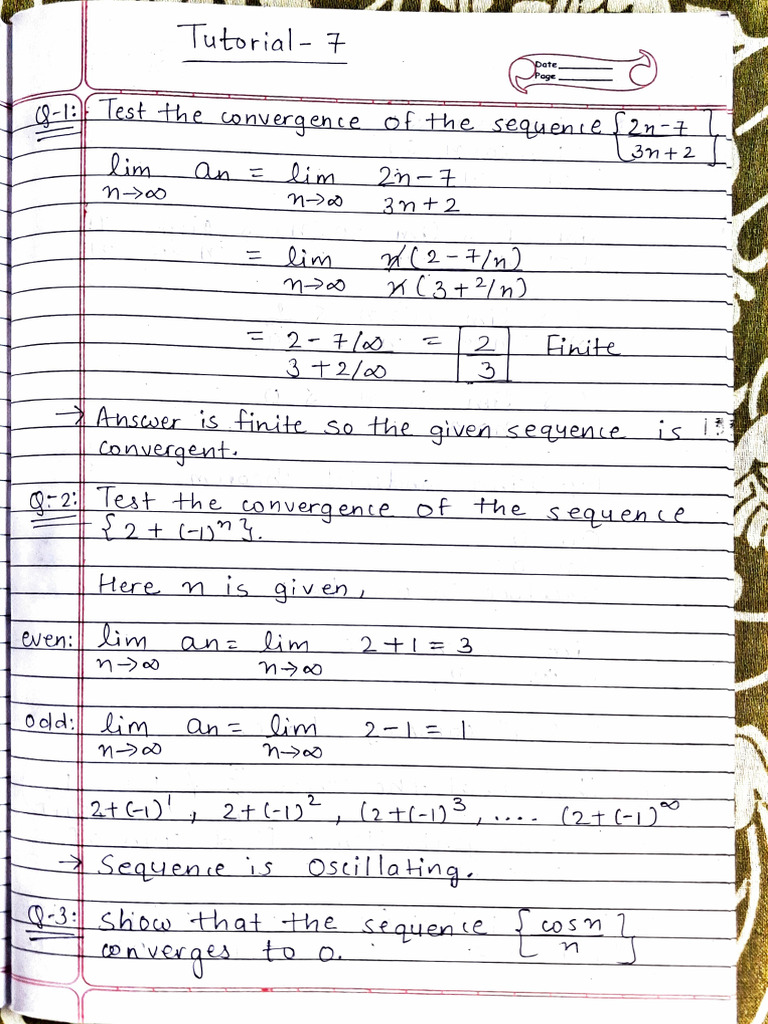 Tutorial - 7
Date
Page
Q-1: Test the convergence of the sequence {2n-7
3n+2}
lim an = lim 2n-7
n→∞ n→∞ 3n+2
= lim n(2-7/n)
n→∞ n(3+2/n)
= 2-7/∞ = 2 Finite
3+2/∞ 3
→ Answer is finite so the given sequence is
convergent.
Q-2: Test the convergence of the sequence
{2+(-1)ⁿ}.
Here n is given,
even: lim an= lim 2+1=3
n→∞ n→∞
odd: lim an= lim 2-1=1
n→∞ n→∞
2+(-1)¹, 2+(-1)², (2+(-1)³, .... (2+(-1)^∞
→ Sequence is Oscillating.
Q-3: Show that the sequence {cosn
n}
converges to 0.